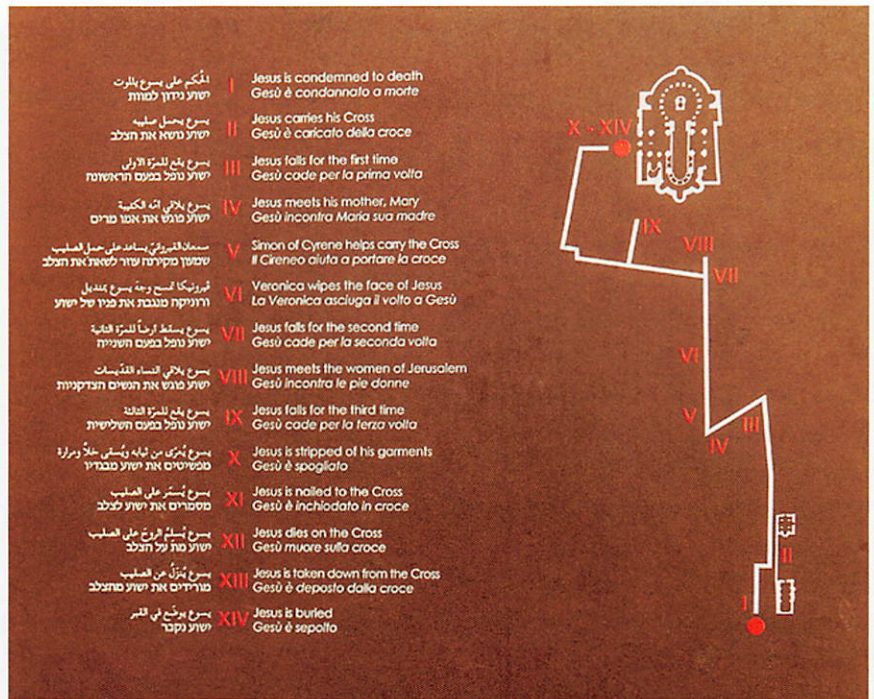 الحكم على يسوع بالموت
ישוע נידון למוות
I
Jesus is condemned to death
Gesù è condannato a morte
يسوع يحمل صليبه
ישוע נושא את הצלב
II
Jesus carries his Cross
Gesù è caricato della croce
يسوع يقع للمرّة الاولى
ישוע נופל בפעם הראשונה
III
Jesus falls for the first time
Gesù cade per la prima volta
يسوع يلاقي امّه الكئيبة
ישוע פוגש את אמו מרים
IV
Jesus meets his mother, Mary
Gesù incontra Maria sua madre
سمعان القيرواني يساعد على حمل الصليب
שמעון מקירנה עוזר לשאת את הצלב
V
Simon of Cyrene helps carry the Cross
Il Cireneo aiuta a portare la croce
ڤيرونيكا تمسح وجه يسوع بمنديل
ורוניקה מנגבת את פניו של ישוע
VI
Veronica wipes the face of Jesus
La Veronica asciuga il volto a Gesù
يسوع يسقط ارضاً للمرّة الثانية
ישוע נופל בפעם השנייה
VII
Jesus falls for the second time
Gesù cade per la seconda volta
يسوع يلاقي النساء القدّيسات
ישוע פוגש את הנשים הצדקניות
VIII
Jesus meets the women of Jerusalem
Gesù incontra le pie donne
يسوع يقع للمرّة الثالثة
ישוע נופל בפעם השלישית
IX
Jesus falls for the third time
Gesù cade per la terza volta
يسوع يُعرّى من ثيابه ويُسقى خلاً ومرارة
מפשיטים את ישוע מבגדיו
X
Jesus is stripped of his garments
Gesù è spogliato
يسوع يُسمّر على الصليب
מסמרים את ישוע לצלב
XI
Jesus is nailed to the Cross
Gesù è inchiodato in croce
يسوع يُسلِمُ الروحَ على الصليب
ישוע מת על הצלב
XII
Jesus dies on the Cross
Gesù muore sulla croce
يسوع يُنزَلُ عن الصليب
מורידים את ישוע מהצלב
XIII
Jesus is taken down from the Cross
Gesù è deposto dalla croce
يسوع يوضَع في القبر
ישוע נקבר
XIV
Jesus is buried
Gesù è sepolto
X - XIV
IX
VIII
VII
VI
V
IV
III
II
I